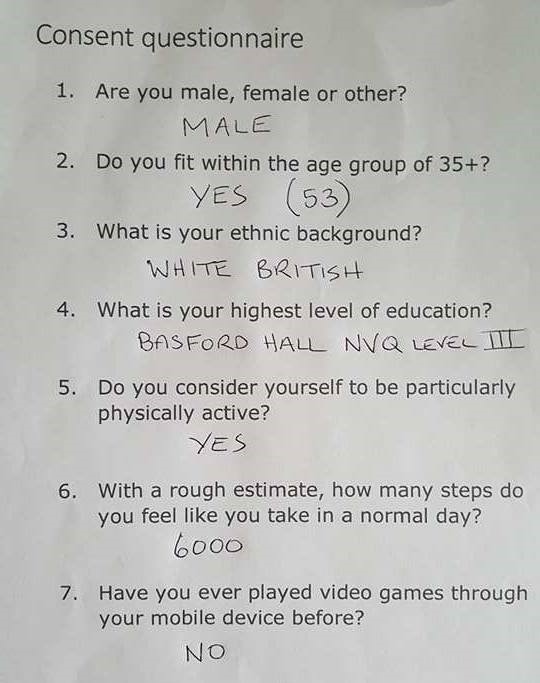 Consent questionnaire
1. Are you male, female or other?
MALE
2. Do you fit within the age group of 35+?
YES (53)
3. What is your ethnic background?
WHITE BRITISH
4. What is your highest level of education?
BASFORD HALL NVQ LEVEL III
5. Do you consider yourself to be particularly
physically active?
YES
6. With a rough estimate, how many steps do
you feel like you take in a normal day?
6000
7. Have you ever played video games through
your mobile device before?
NO